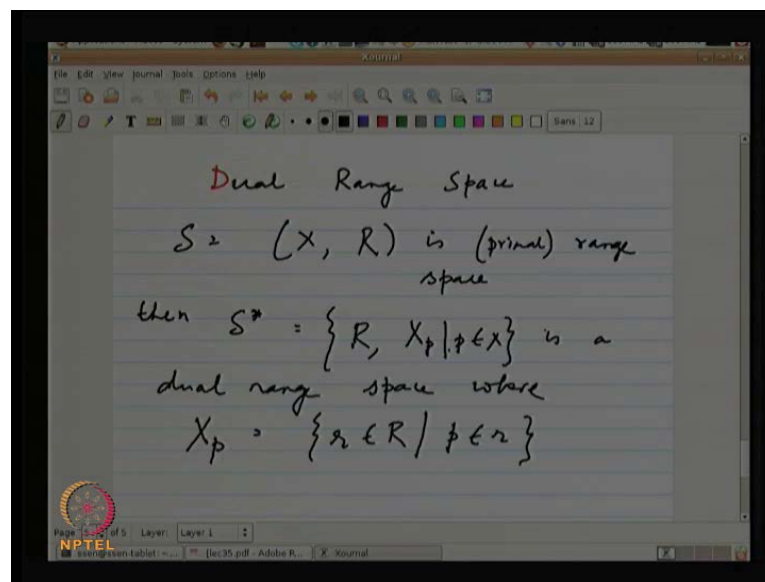 Xournal
File Edit View Journal Tools Options Help
T Sans 12
Dual Range Space
S = (X, R) is (primal) range
space
then S* = { R, X_p | p ∈ X } is a
dual range space where
X_p = { r ∈ R | p ∈ r }
Page 5 of 5 Layer: Layer 1
NPTEL
[lec35.pdf - Adobe R... Xournal